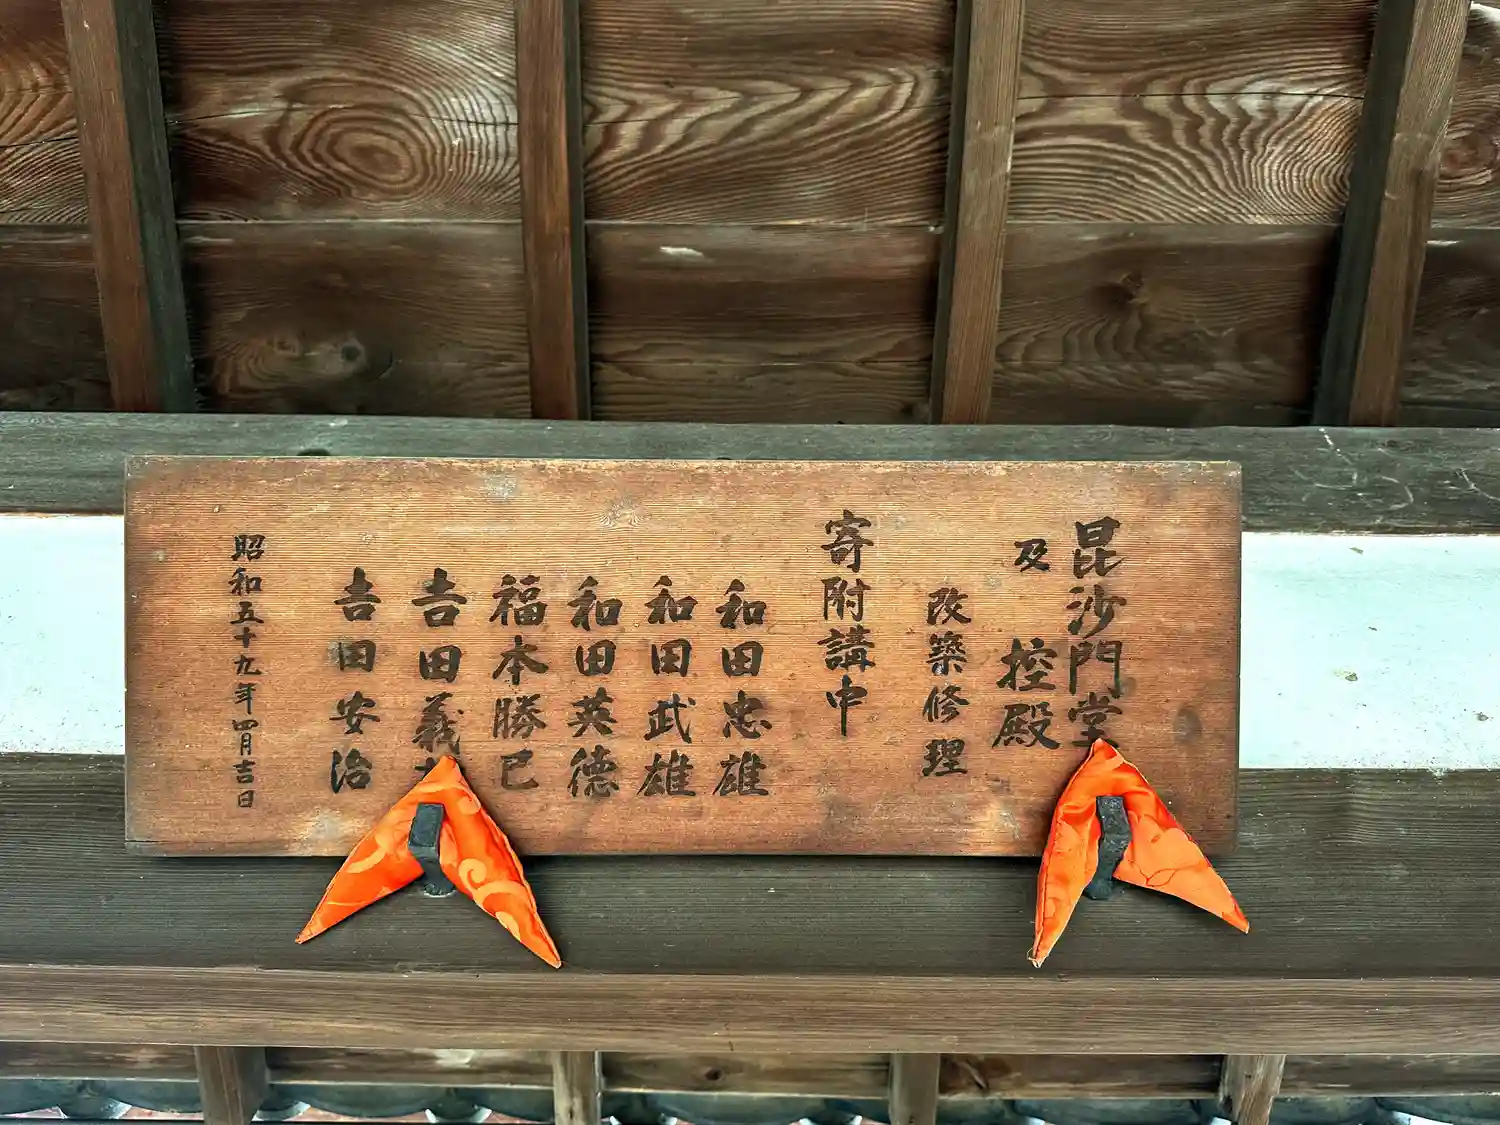 毘沙門堂
及 控殿
改築修理
寄附講中
和田忠雄
和田武雄
和田英德
福本勝已
𠮷田義
𠮷田安治
昭和五十九年四月吉日